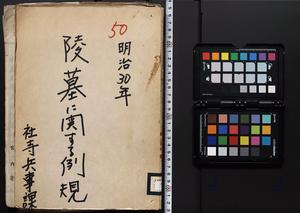 50
明治30年
陵墓に関する例規
社寺兵事課